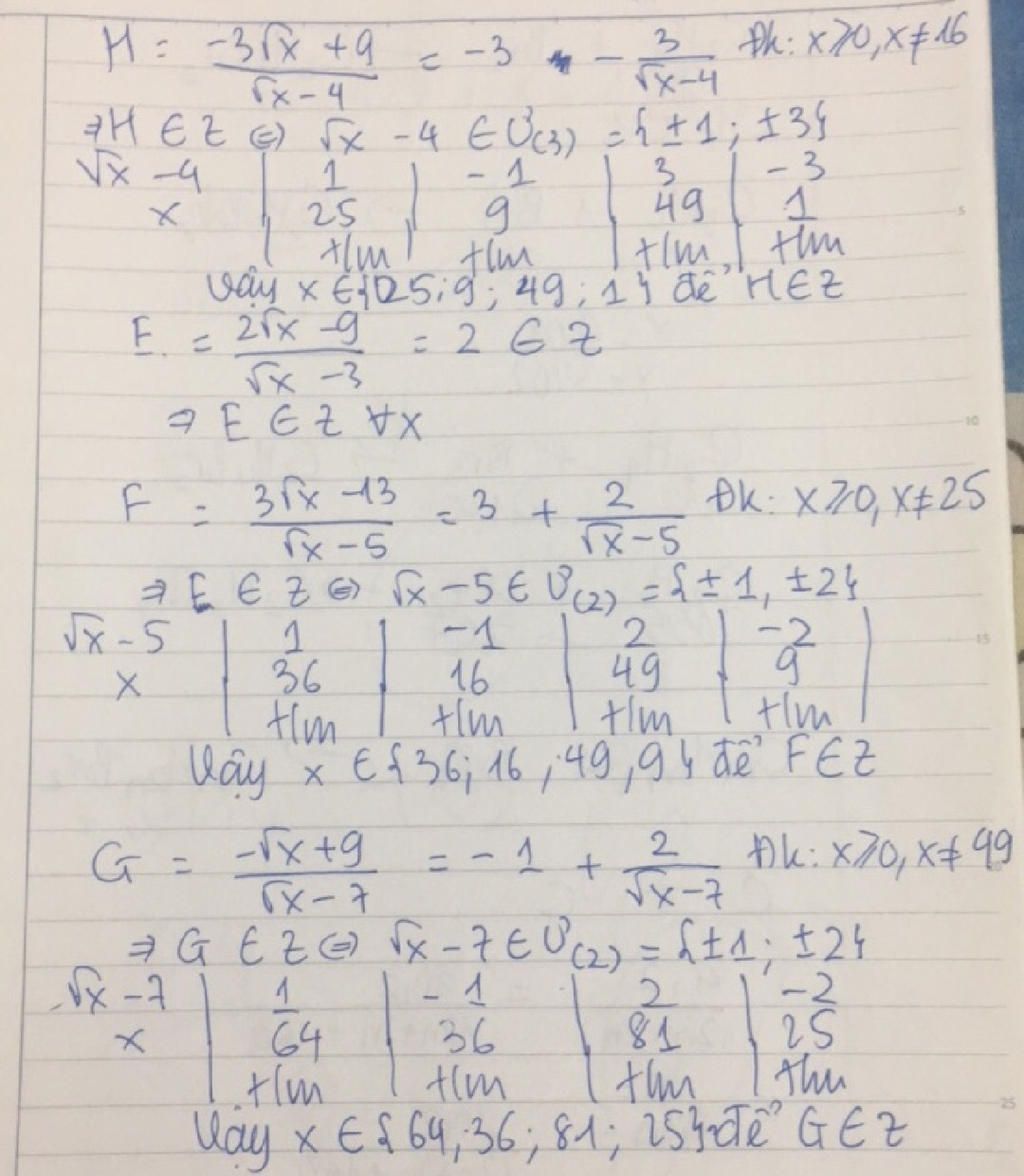 H = (-3√x + 9)/(√x - 4) = -3 - 3/(√x-4) Đk: x⩾0, x≠16
⇒ H ∈ Z ⇔ √x - 4 ∈ Ư(3) = {±1; ±3}
√x - 4 | 1 | -1 | 3 | -3
x | 25 | 9 | 49 | 1
| t/m | t/m | t/m | t/m
Vậy x ∈ {25; 9; 49; 1} để H ∈ Z
E = (2√x - 9)/(√x - 3) = 2 ∈ Z
⇒ E ∈ Z ∀x
F = (3√x - 13)/(√x - 5) = 3 + 2/(√x - 5) Đk: x⩾0, x≠25
⇒ E ∈ Z ⇔ √x - 5 ∈ Ư(2) = {±1, ±2}
√x - 5 | 1 | -1 | 2 | -2 |
x | 36 | 16 | 49 | 9 |
| t/m | t/m | t/m | t/m |
Vậy x ∈ {36; 16, 49, 9} để F ∈ Z
G = (-√x + 9)/(√x - 7) = -1 + 2/(√x - 7) Đk: x⩾0, x≠49
⇒ G ∈ Z ⇔ √x - 7 ∈ Ư(2) = {±1; ±2}
√x - 7 | 1 | -1 | 2 | -2
x | 64 | 36 | 81 | 25
| t/m | t/m | t/m | t/m
Vậy x ∈ {64, 36; 81; 25} để G ∈ Z
5
10
15
25